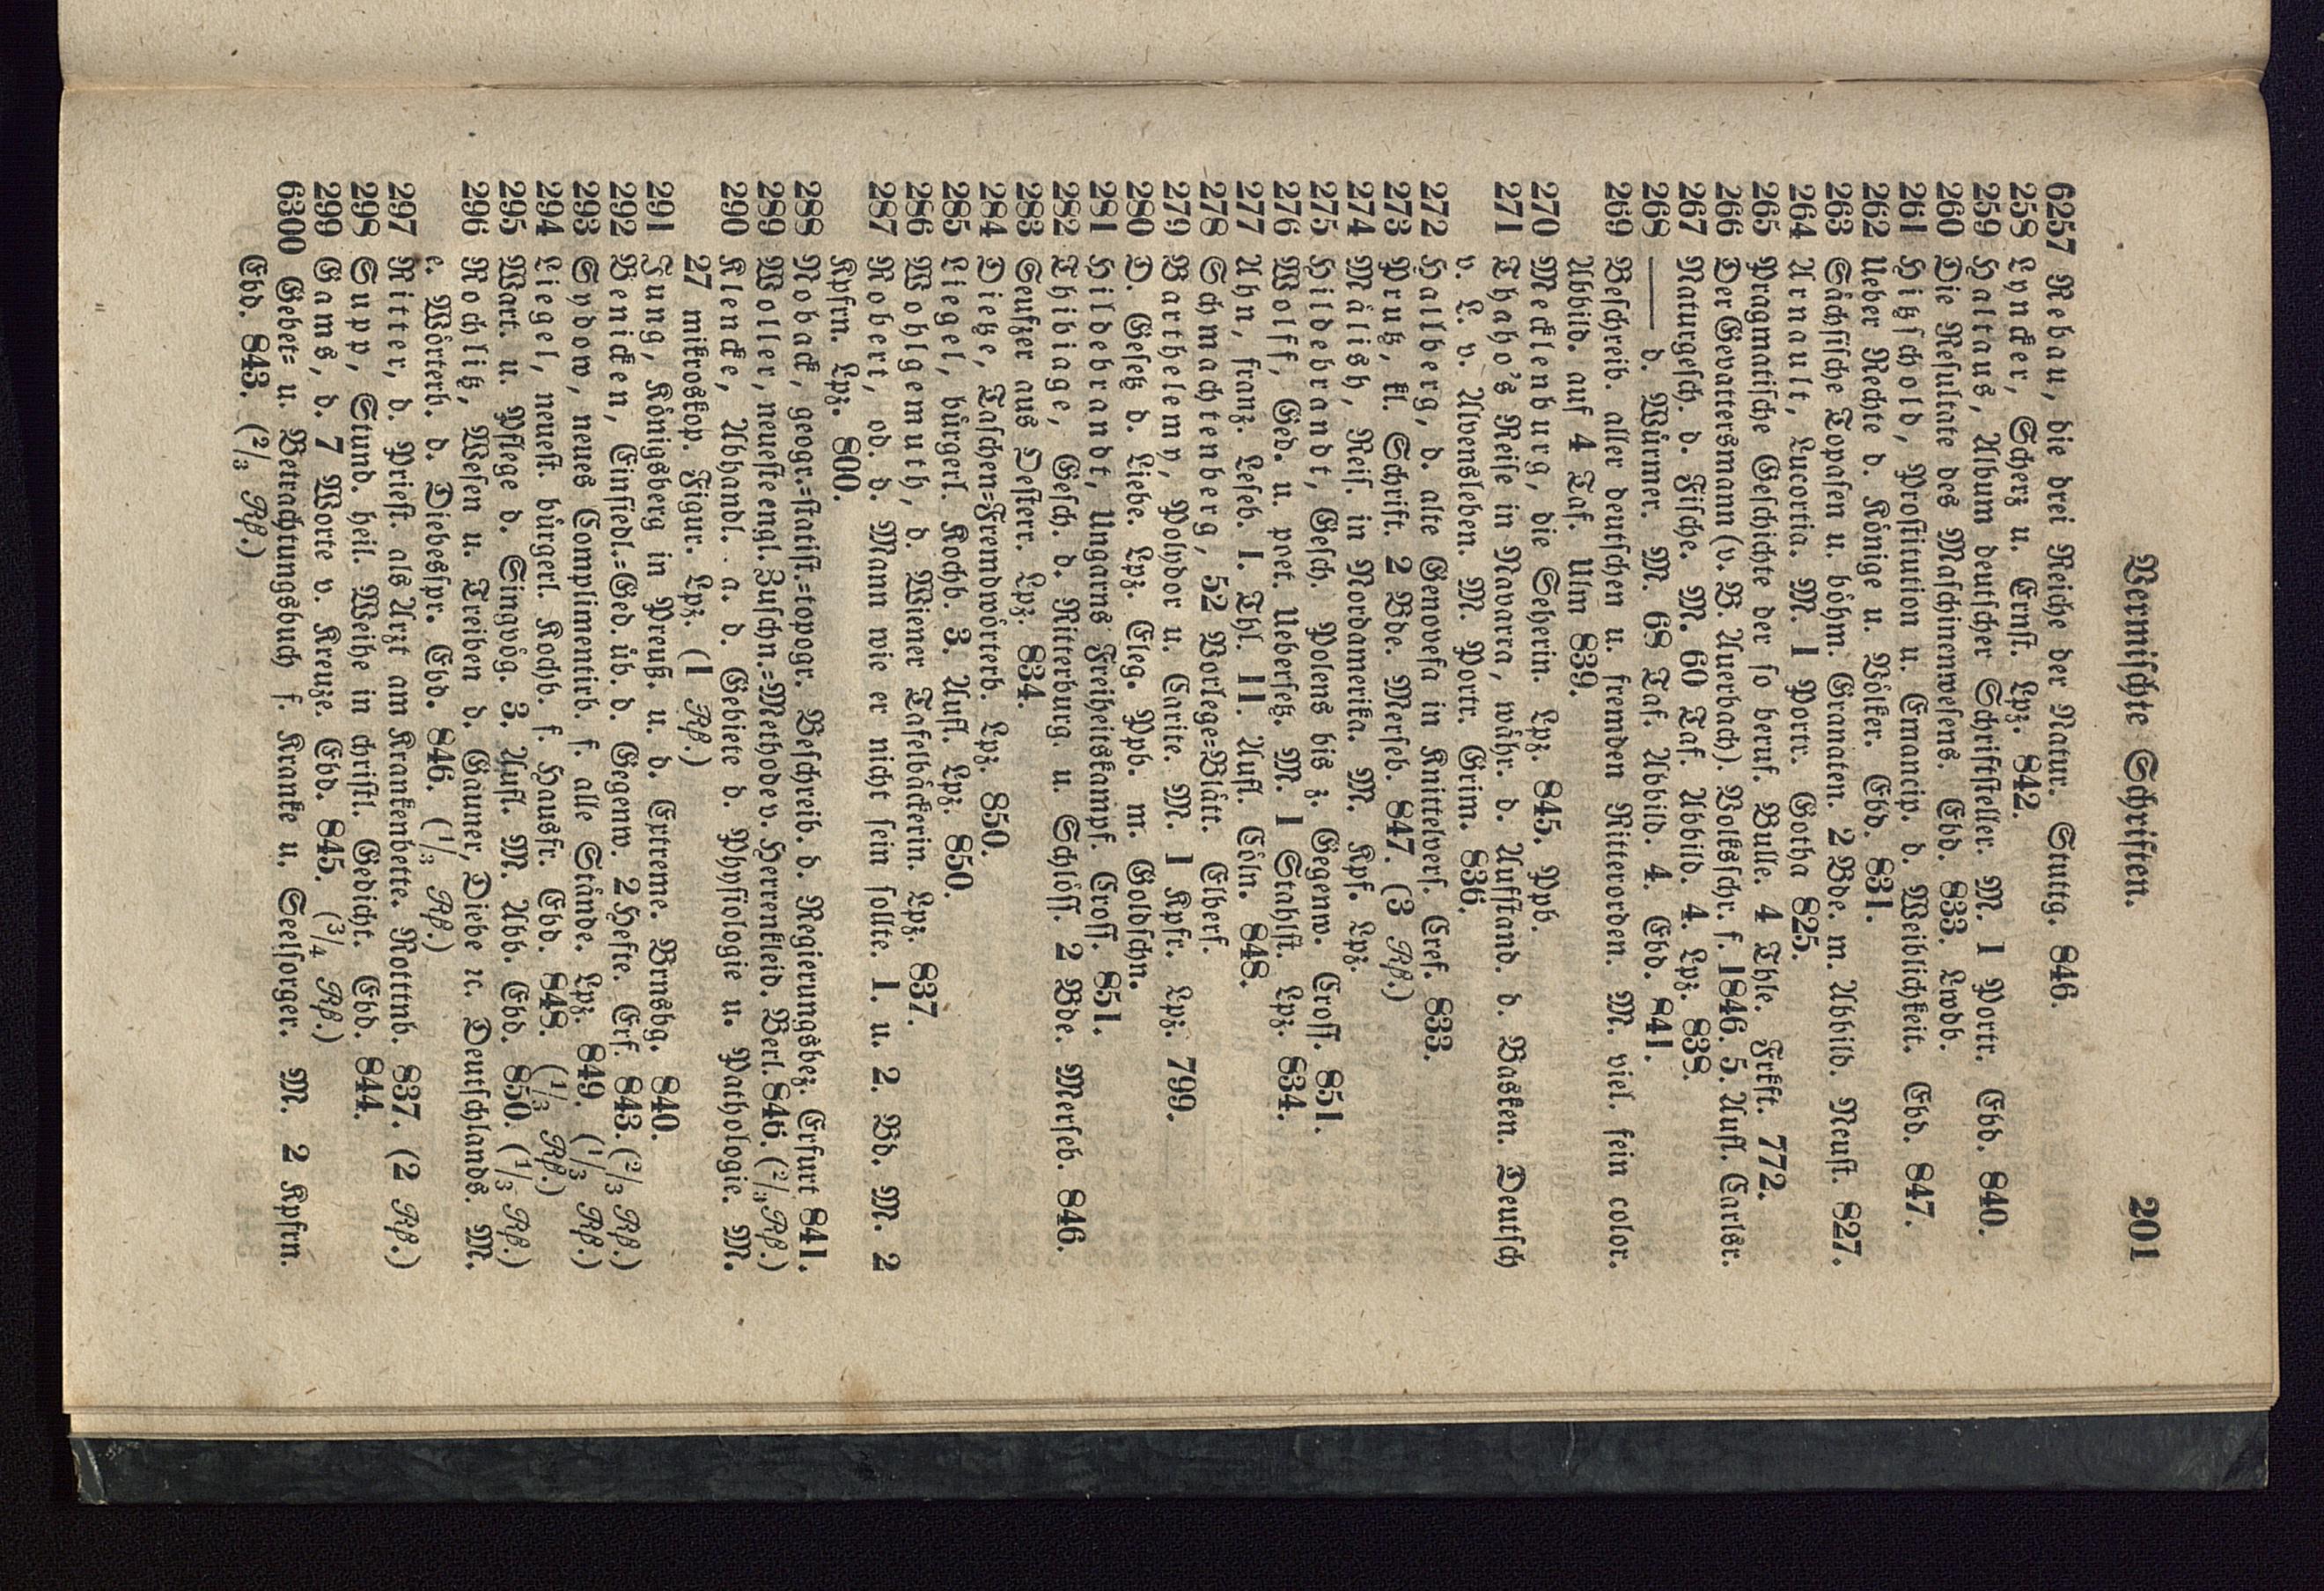 Vermiſchte Schriften. 201
6257 Rebau, die drei Reiche der Natur. Stuttg. 846.
258 Lyncker, Scherz u. Ernſt. Lpz. 842.
259 Haltaus, Album deutſcher Schriftſteller. M. 1 Portr. Ebd. 840.
260 Die Reſultate des Maſchinenweſens. Ebd. 833. Lwdb.
261 Hitzſchold, Proſtitution u. Emancip. d. Weiblichkeit. Ebd. 847.
262 Ueber Rechte d. Könige u. Völker. Ebd. 831.
263 Sächſiſche Topaſen u. böhm. Granaten. 2 Bde. m. Abbild. Neuſt. 827.
264 Arnault, Lucortia. M. 1 Portr. Gotha 825.
265 Pragmatiſche Geſchichte der ſo beruf. Bulle. 4 Thle. Frkft. 772.
266 Der Gevattersmann (v. B. Auerbach). Volksſchr. f. 1846. 5. Aufl. Carlsr.
267 Naturgeſch. d. Fiſche. M. 60 Taf. Abbild. 4. Lpz. 838.
268 —— d. Würmer. M. 68 Taf. Abbild. 4. Ebd. 841.
269 Beſchreib. aller deutſchen u. fremden Ritterorden. M. viel. fein color.
Abbild. auf 4 Taf. Ulm 839.
270 Mecklenburg, die Seherin. Lpz. 845. Ppb.
271 Thaho's Reiſe in Navarra, währ. d. Aufſtand. d. Basken. Deutſch
v. L. v. Alvensleben. M. Portr. Grim. 836.
272 Hallberg, d. alte Genovefa in Knittelverſ. Cref. 833.
273 Prutz, kl. Schrift. 2 Bde. Merſeb. 847. (3 Rß.)
274 Mälish, Reiſ. in Nordamerika. M. Kpf. Lpz.
275 Hildebrandt, Geſch. Polens bis z. Gegenw. Croſſ. 851.
276 Wolff, Ged. u. poet. Ueberſetz. M. 1 Stahlſt. Lpz. 834.
277 Ahn, franz. Leſeb. 1. Thl. 11. Aufl. Cöln. 848.
278 Schmachtenberg, 52 Vorlege=Blätt. Elberf.
279 Barthelemy, Polydor u. Carite. M. 1 Kpfr. Lpz. 799.
280 D. Geſetz d. Liebe. Lpz. Eleg. Ppb. m. Goldſchn.
281 Hildebrandt, Ungarns Freiheitskampf. Croſſ. 851.
282 Thibiage, Geſch. d. Ritterburg. u. Schlöſſ. 2 Bde. Merſeb. 846.
283 Seufzer aus Oeſterr. Lpz. 834.
284 Dietze, Taſchen=Fremdwörterb. Lpz. 850.
285 Liegel, bürgerl. Kochb. 3. Aufl. Lpz. 850.
286 Wohlgemuth, d. Wiener Tafelbäckerin. Lpz. 837.
287 Robert, od. d. Mann wie er nicht ſein ſollte. 1. u. 2. Bd. M. 2
Kpfrn. Lpz. 800.
288 Noback, geogr.=ſtatiſt.=topogr. Beſchreib. d. Regierungsbez. Erfurt 841.
289 Woller, neueſte engl. Zuſchn.=Methode v. Herrenkleid. Berl. 846. (²/₃ Rß.)
290 Klencke, Abhandl. a. d. Gebiete d. Phyſiologie u. Pathologie. M.
27 mikroskop. Figur. Lpz. (1 Rß.)
291 Jung, Königsberg in Preuß. u. d. Extreme. Brnsbg. 840.
292 Benicken, Einſiedl.=Ged. üb. d. Gegenw. 2 Hefte. Erf. 843. (²/₃ Rß.)
293 Sydow, neues Complimentirb. f. alle Stände. Lpz. 849. (¹/₃ Rß.)
294 Liegel, neueſt. bürgerl. Kochb. f. Hausfr. Ebd. 848. (¹/₃ Rß.)
295 Wart. u. Pflege d. Singvög. 3. Aufl. M. Abb. Ebd. 850. (¹/₃ Rß.)
296 Rochlitz, Weſen u. Treiben d. Gauner, Diebe ꝛc. Deutſchlands. M.
e. Wörterb. d. Diebesſpr. Ebd. 846. (¹/₃ Rß.)
297 Ritter, d. Prieſt. als Arzt am Krankenbette. Rottnb. 837. (2 Rß.)
298 Supp, Stund. heil. Weihe in chriſtl. Gedicht. Ebd. 844.
299 Gams, d. 7 Worte v. Kreuze. Ebd. 845. (³/₄ Rß.)
6300 Gebet= u. Betrachtungsbuch f. Kranke u. Seelſorger. M. 2 Kpfrn.
Ebd. 843. (²/₃ Rß.)